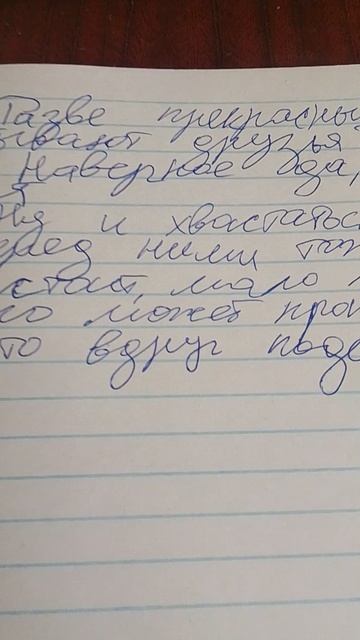 Разве прекрасны
бывают друзья
Наверное да,
я
ня и хвастаться
еред ними то
стати, мало
го может прои
то вдруг подс